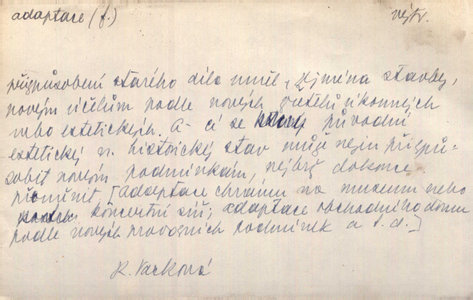 adaptace (f.) výtv.
přizpůsobení starého díla uměl., zejména stavby,
novým účelům podle nových zřetelů výkonných
nebo estetických. A-cí se původní
estetický n. historický stav může nejen přizpů-
sobit novým podmínkám, nejbrž dokonce
proměnit, [adaptace chrámu na museum nebo
koncertní síň; adaptace obchodního domu
podle nových provozních podmínek a t. d.]
R. Vacková